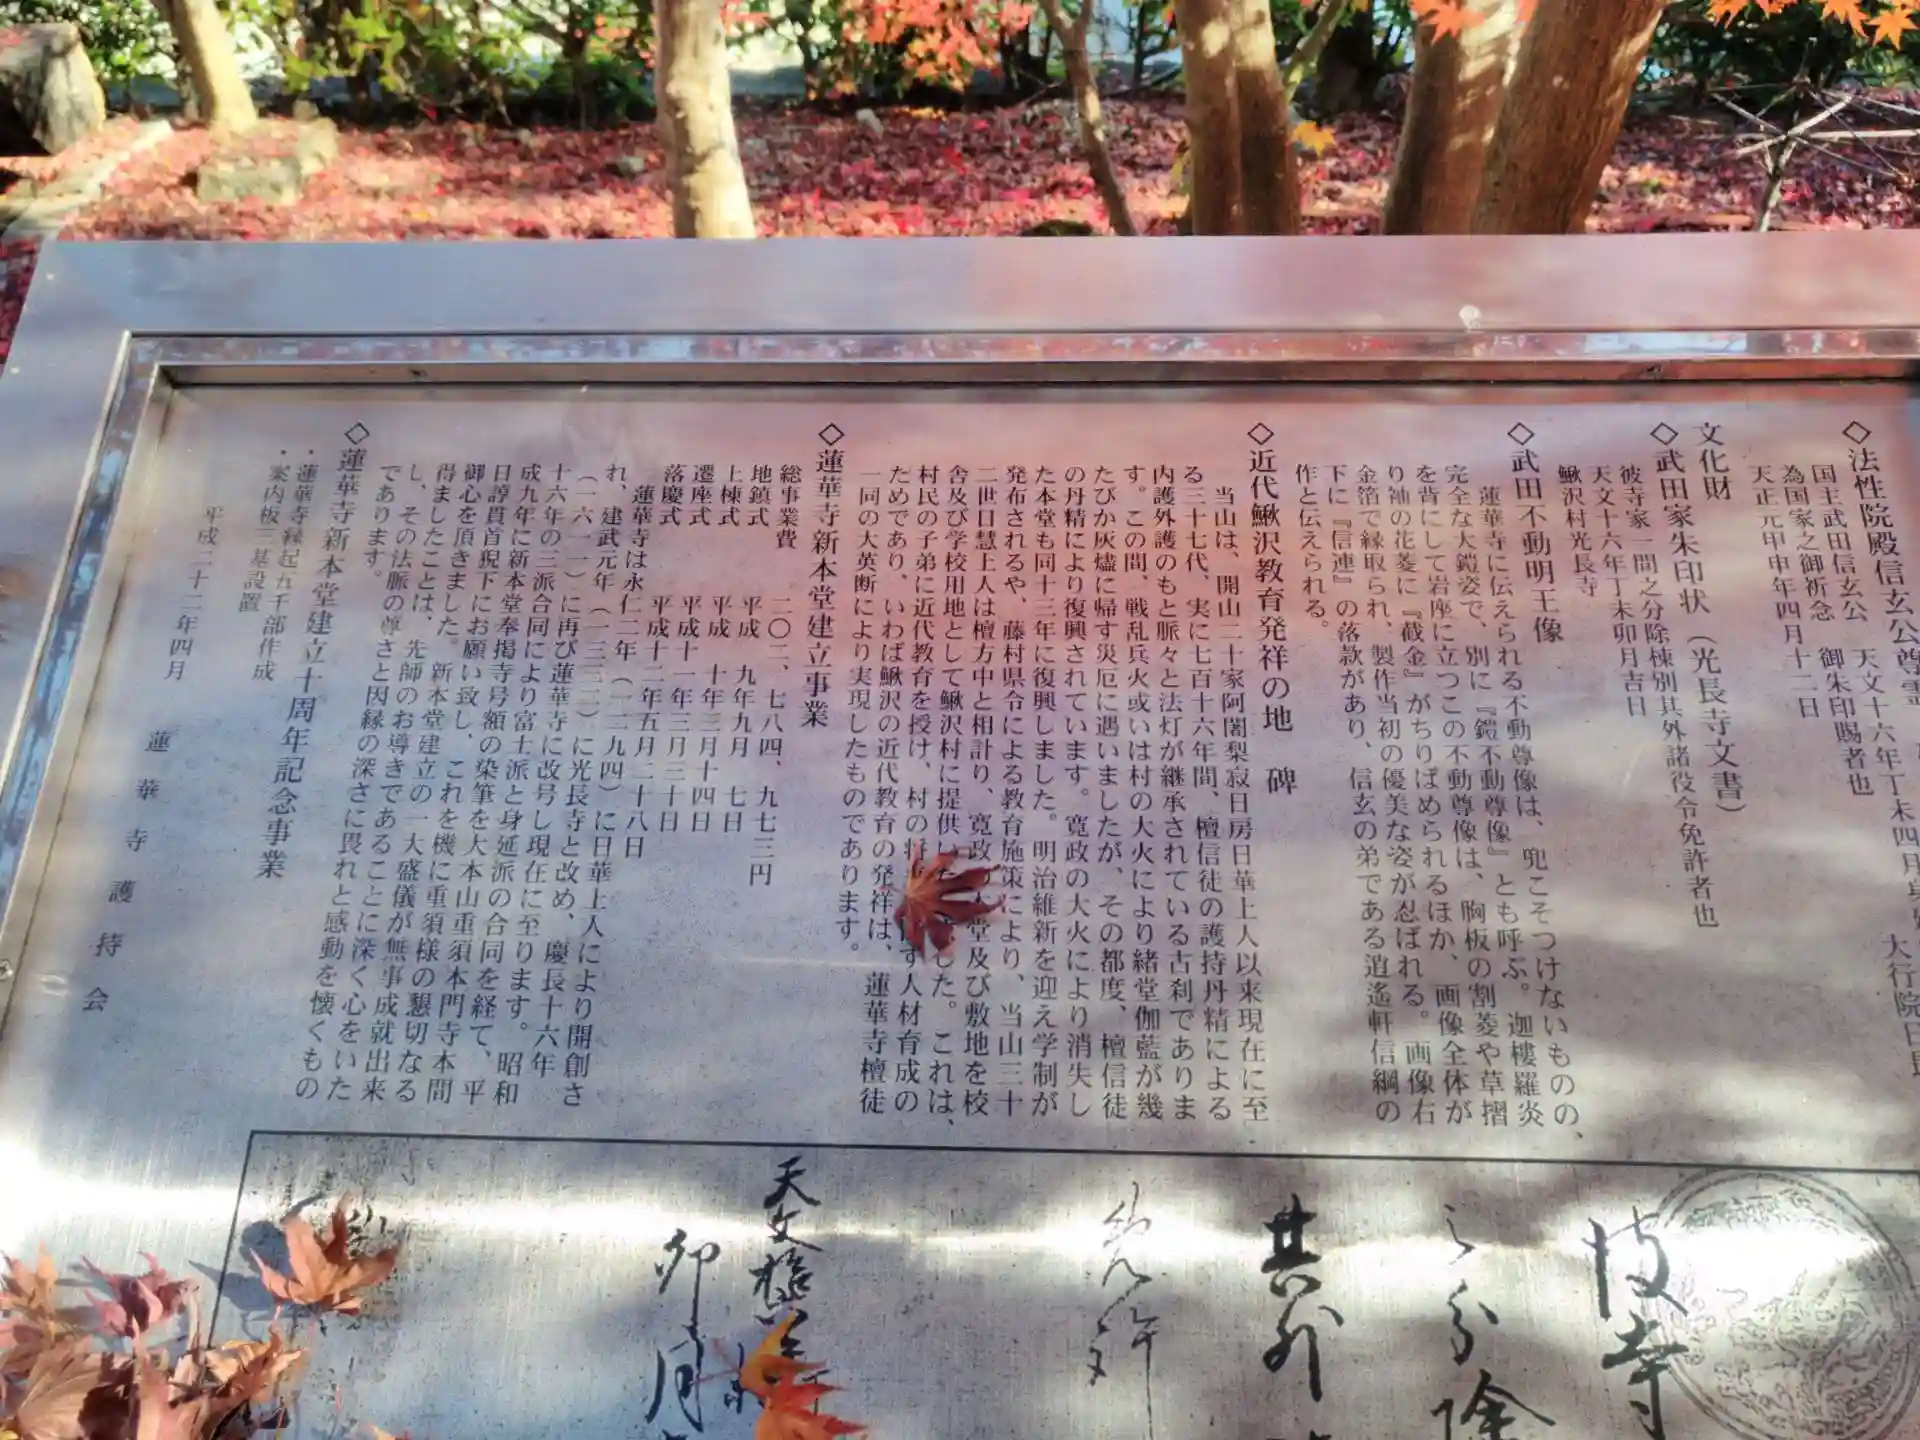 ◇法性院殿信玄公尊霊
国主武田信玄公 天文十六年丁未四月
為国家之御祈念 御朱印賜者也
天正元甲申年四月十二日
大行院日
文化財
◇武田家朱印状(光長寺文書)
彼寺家一間之分除棟別其外諸役令免許者也
天文十六年丁未卯月吉日
鰍沢村光長寺
◇武田不動明王像
蓮華寺に伝えられる不動尊像は、兜こそつけないものの、
完全な大鎧姿で、別に『鎧不動尊像』とも呼ぶ。迦樓羅炎
を背にして岩座に立つこの不動尊像は、胸板の割菱や草摺
り袖の花菱に『截金』がちりばめられるほか、画像全体が
金箔で縁取られ、製作当初の優美な姿が忍ばれる。画像右
下に『信連』の落款があり、信玄の弟である逍遙軒信綱の
作と伝えられる。
◇近代鰍沢教育発祥の地 碑
当山は、開山二十家阿闍梨寂日房日華上人以来現在に至
る三十七代、実に七百十六年間、檀信徒の護持丹精による
内護外護のもと脈々と法灯が継承されている古刹でありま
す。この間、戦乱兵火或いは村の大火により緒堂伽藍が幾
たびか灰燼に帰す災厄に遇いましたが、その都度、檀信徒
の丹精により復興されています。寛政の大火により消失し
た本堂も同十三年に復興しました。明治維新を迎え学制が
発布されるや、藤村県令による教育施策により、当山三十
二世日慧上人は檀方中と相計り、寛政の 堂及び敷地を校
舎及び学校用地として鰍沢村に提供い した。これは、
村民の子弟に近代教育を授け、村の将 す人材育成の
ためであり、いわば鰍沢の近代教育の発祥は、蓮華寺檀徒
一同の大英断により実現したものであります。
◇蓮華寺新本堂建立事業
総事業費 二〇二、七八四、九七三円
地鎮式 平成 九年九月 七日
上棟式 平成 十年三月十四日
遷座式 平成十一年三月三十日
落慶式 平成十二年五月二十八日
蓮華寺は永仁二年(一二九四)に日華上人により開創さ
れ、建武元年(一三三二)に光長寺と改め、慶長十六年
(一六一一)に再び蓮華寺に改号し現在に至ります。昭和
十六年の三派合同により富士派と身延派の合同を経て、平
成九年に新本堂奉掲寺号額の染筆を大本山重須本門寺本間
日諄貫首猊下にお願い致し、これを機に重須様の懇切なる
御心を頂きました。新本堂建立の一大盛儀が無事成就出来
得ましたことは、先師のお導きであることに深く心をいた
し、その法脈の尊さと因縁の深さに畏れと感動を懐くもの
であります。
◇蓮華寺新本堂建立十周年記念事業
・蓮華寺縁起五千部作成
・案内板三基設置
平成二十二年四月
蓮華寺護持会
彼寺
之分除
其外
免許
天文
卯月